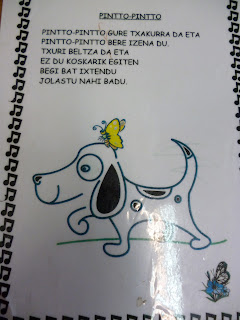 PINTTO-PINTTO
PINTTO-PINTTO GURE TXAKURRA DA ETA
PINTTO-PINTTO BERE IZENA DU.
TXURI BELTZA DA ETA
EZ DU KOSKARIK EGITEN
BEGI BAT IXTENDU
JOLASTU NAHI BADU.